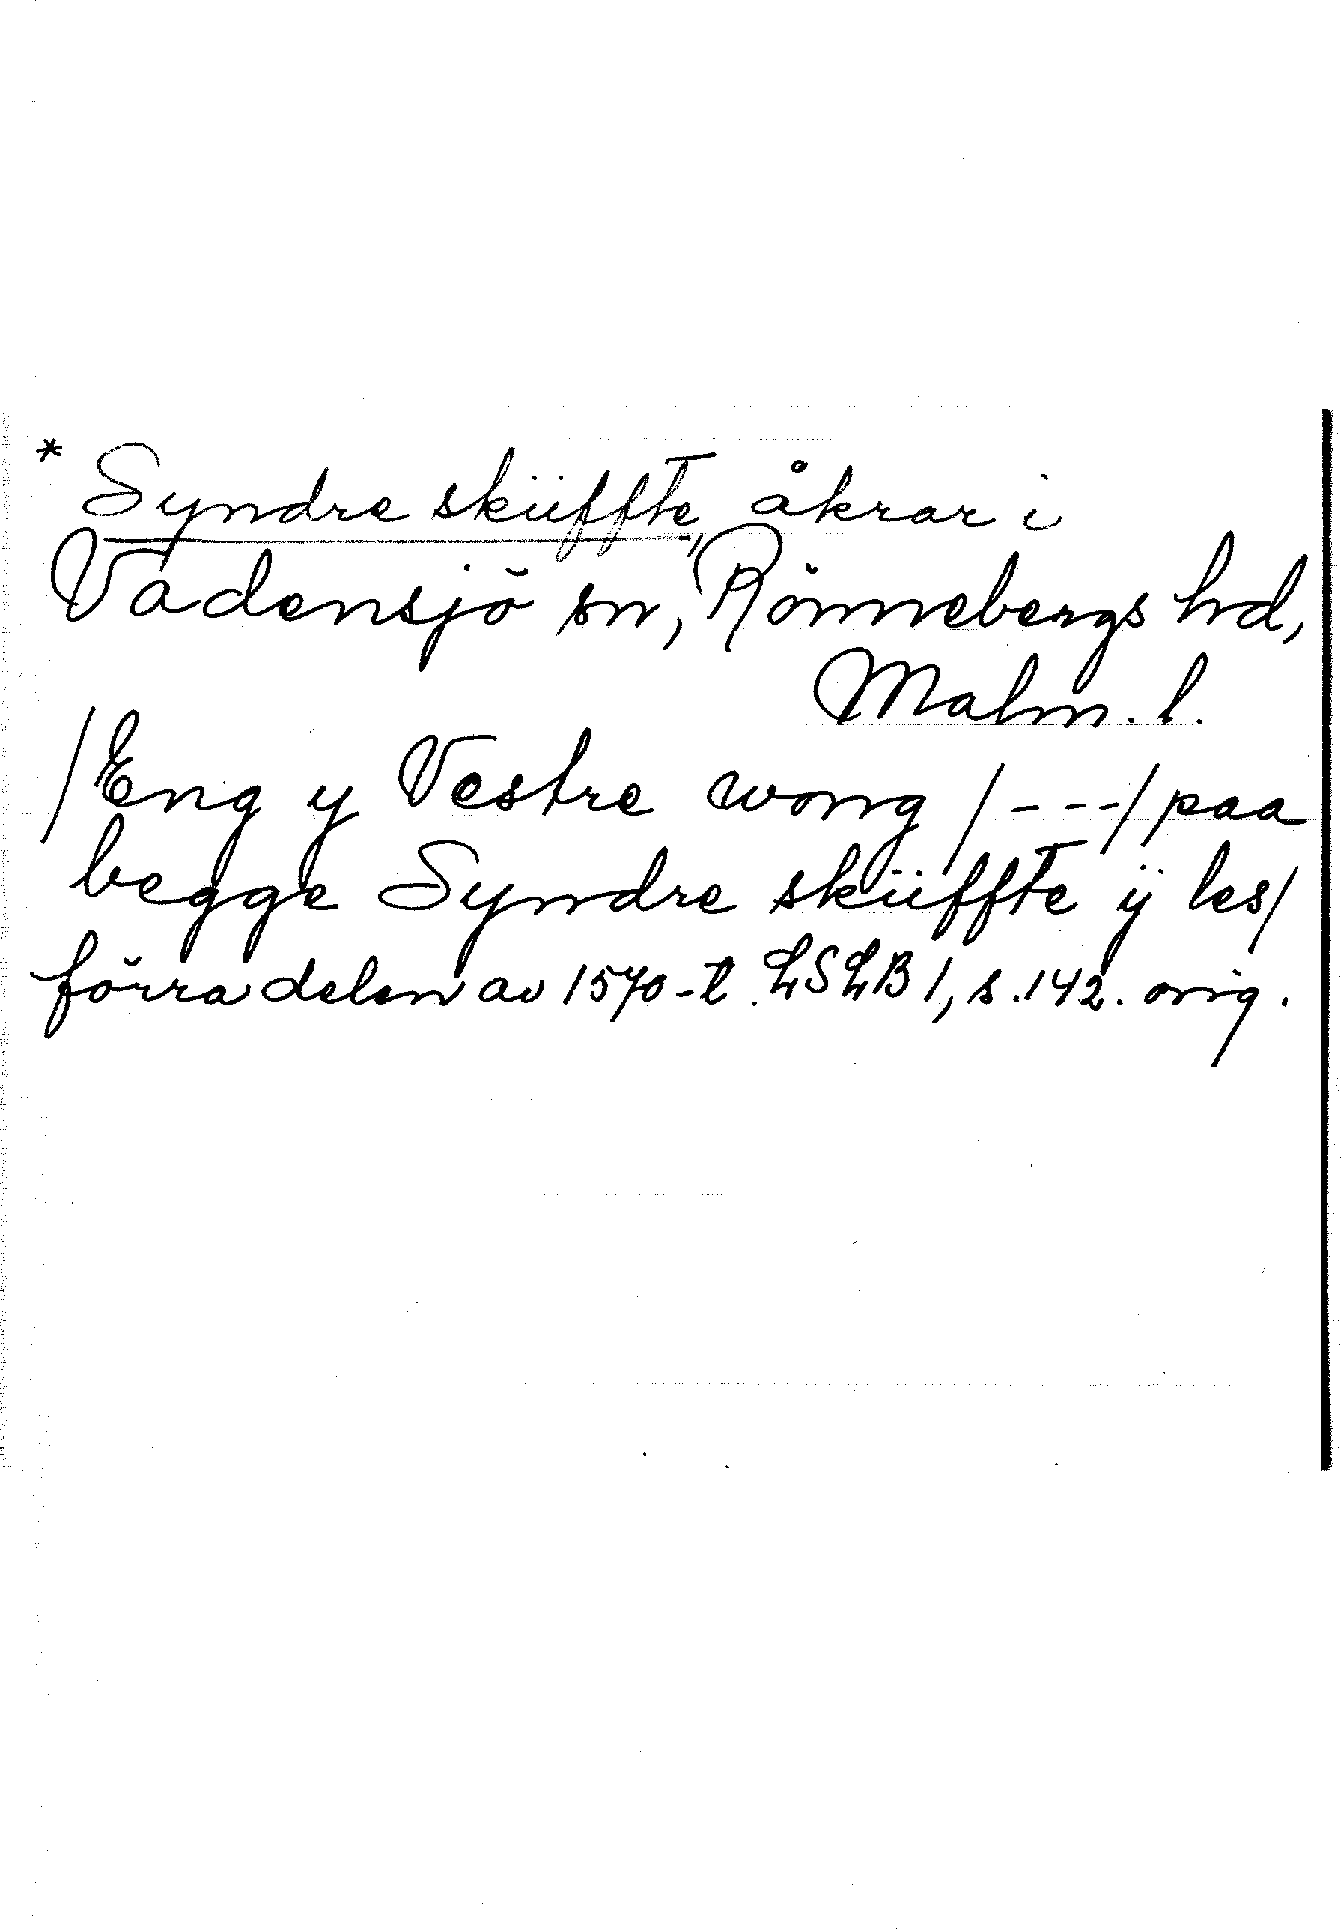 * Syndre sküffte, åkrar i
Vadensjö sn, Rönnebergs hd,
Malm. l.
/Eng y Vestre wong /---/ paa
begge Syndre sküffte ÿ les/
förra delen av 1570-t. LSLB 1, s. 142. orig.